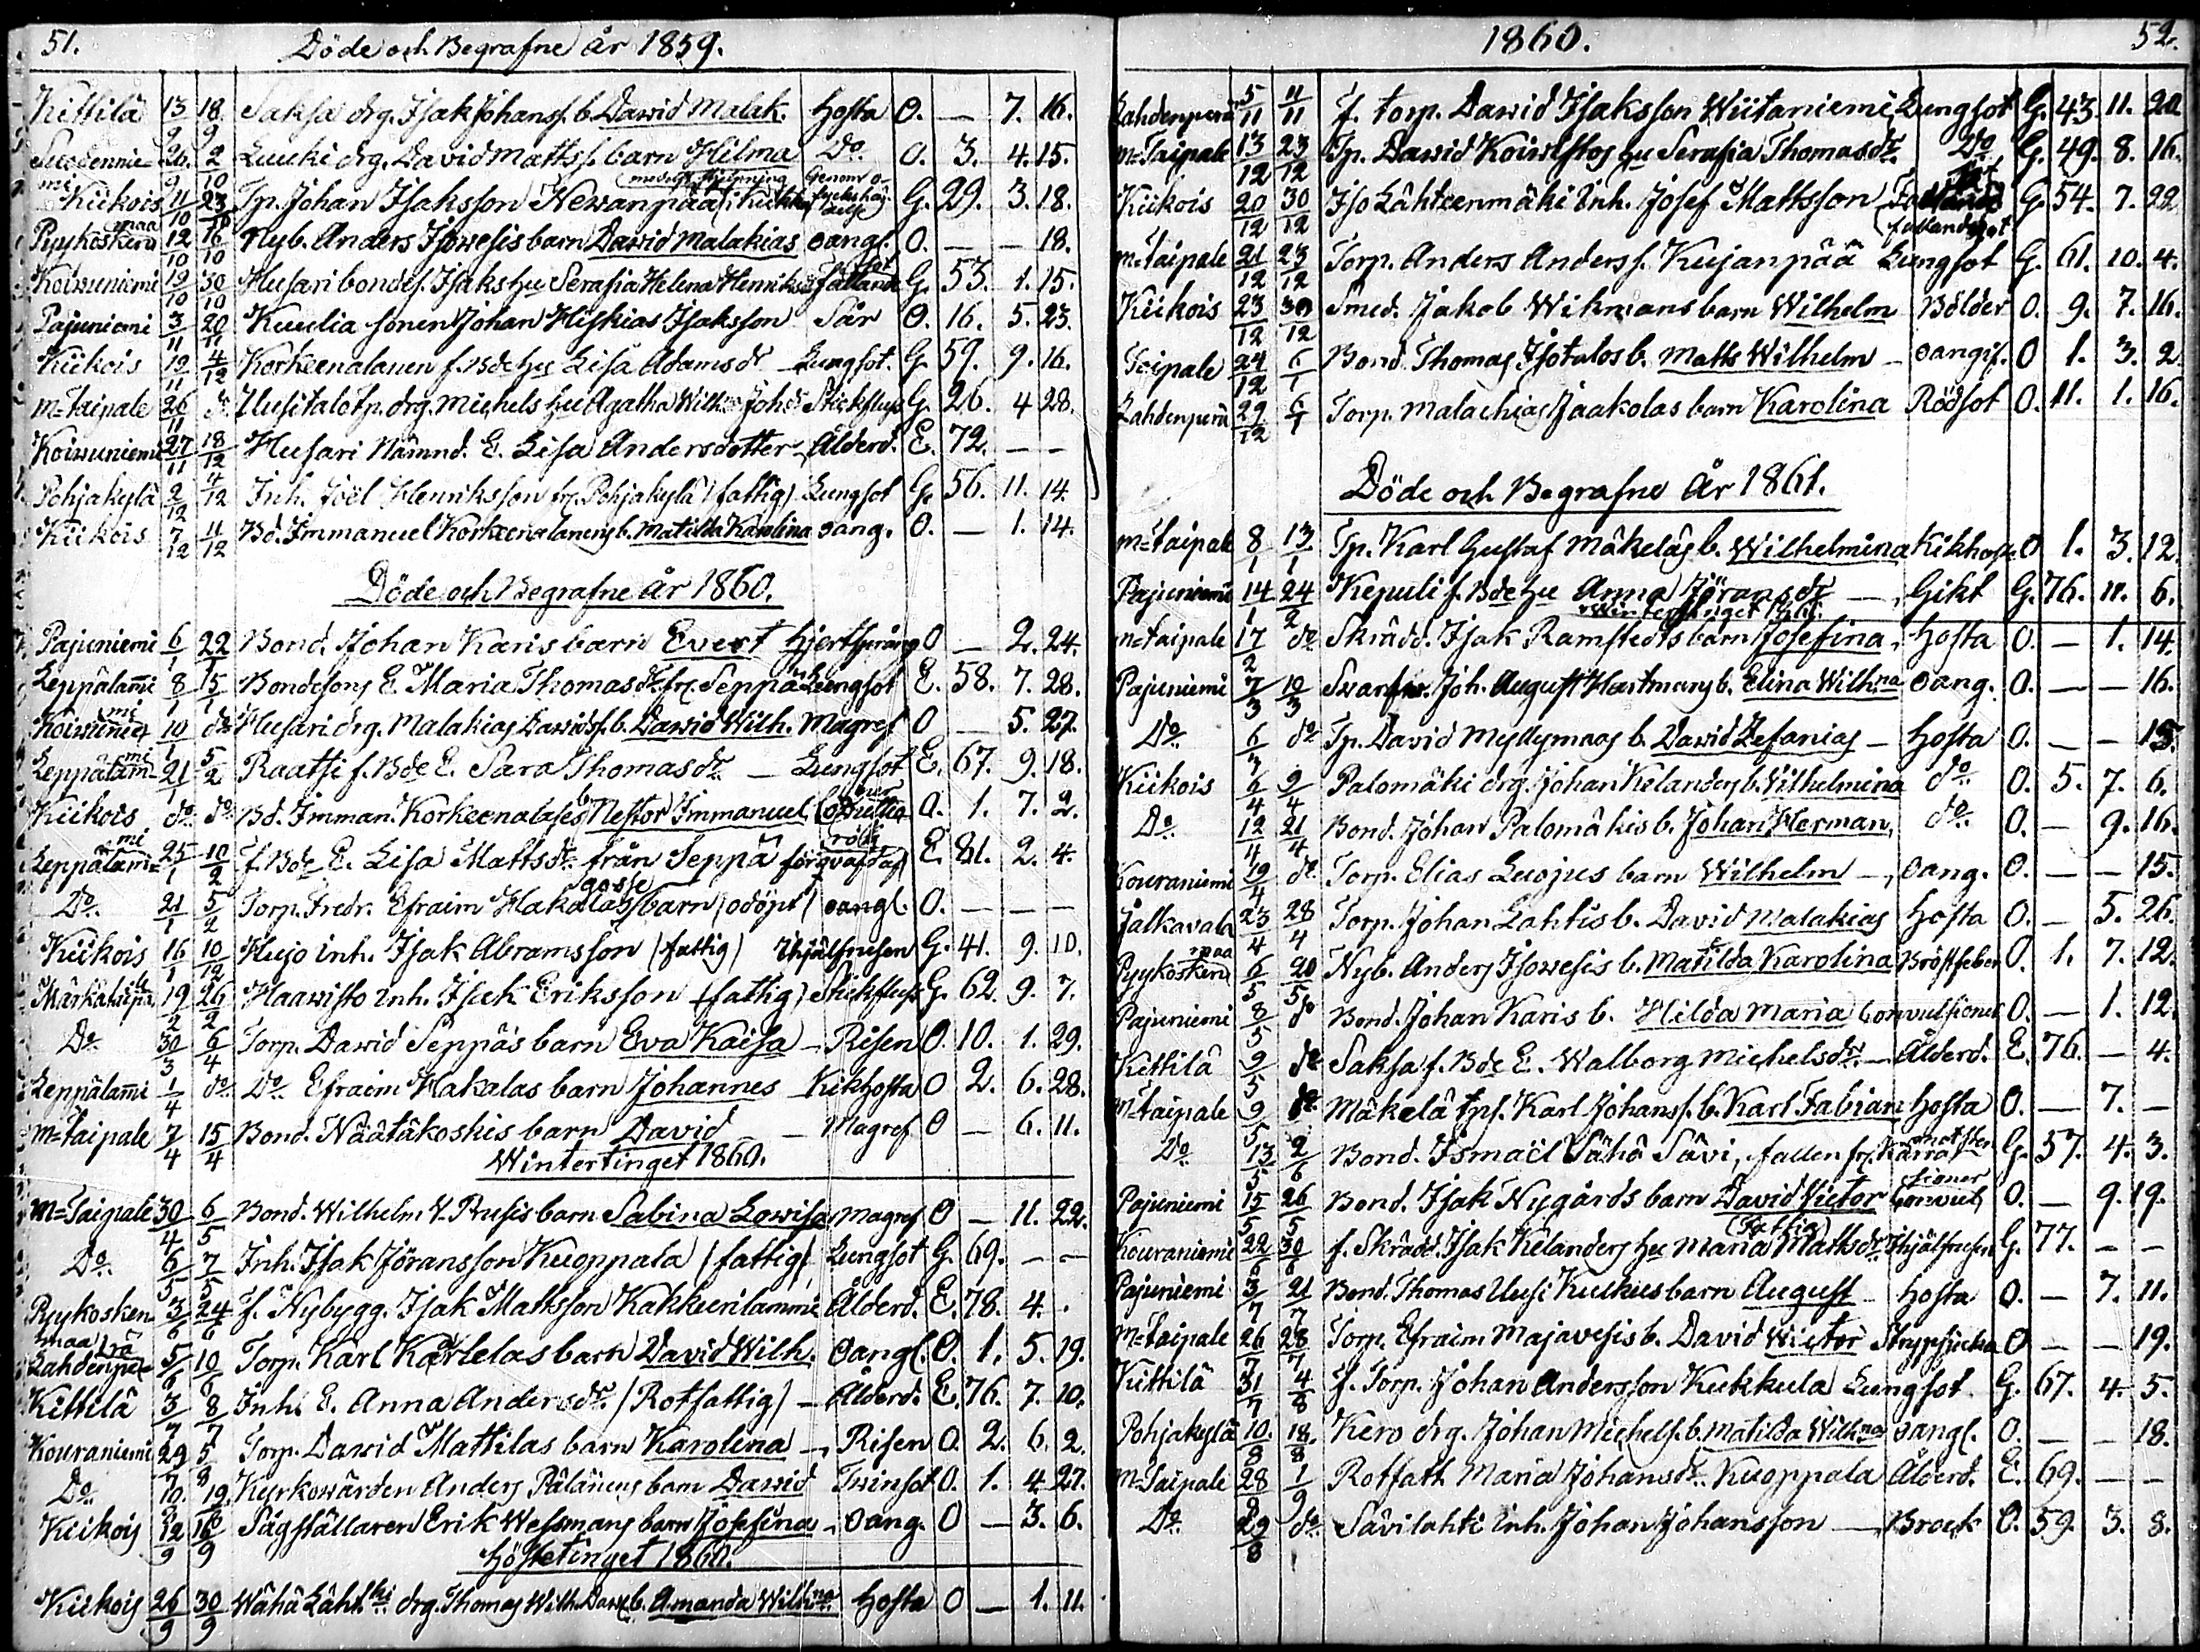 51. Döde och Begrafne år 1859.
Kittilä 13/9 18/9 Saksa drg. Isak Johans s. b. Dawid Malak. Hosta O. — 7. 16.
Suodennie-mi 26/9 2/10 Luuki drg. David Matts s. barn Hilma Do. O. 3. 4. 15.
Kiikois 11/10 23/10 Tp. Johan Isaksson Newanpää G. 29. 3. 18.
Pyykoskenmaa 12/10 16/10 Nyb. Anders Isowesis barn Dawid Malakias oangl. O. — — 18.
Koiwuniemi 19/10 30/10 Husari bondes. Isaks hu Serafia Helena Henriksdr fallandesot G. 53. 1. 15.
Pajuniemi 3/11 20/11 Kuulia sonen Johan Hiskias Isaksson Sår O. 16. 5. 23.
Kiikois 19/11 4/12 Korkeenalanen f. Bde hu Lisa Adamsdr Lungsot. G. 59. 9. 16.
M=Taipale 26/11 do. Uusitalo tp. drg. Michels hu Agatha Wilhna Johdr Stickfluss G. 26. 4 28.
Koiwuniemi 27/11 18/12 Husari Nämnd. E. Lisa Andersdotter Ålderd. E. 72. — —
Pohjakylä 2/12 4/12 Inh. Joël Henriksson fr. Pohjakylä (fattig) Lungsot G. 56. 11. 14.
Kiikois 7/12 11/12 Bd. Immanuel Korkeenalanens b. Matilda Karolina oang. O. — 1. 14.
Döde och Begrafne år 1860.
Pajuniemi 6/1 22/1 Bond. Johan Karis barn Evert Hjertsprång O — 2. 24.
Leppälammi 8/1 15/1 Bondesons E. Maria Thomasdr fr. Seppä Lungsot E. 58. 7. 28.
Koiwuniemi 10/1 do Husari drg. Malakias Dawids s. b. Dawid Wilh. Magref O — 5. 27.
Leppälammi 21/1 5/2 Raatsi f. Bde E. Sara Thomasdr. — Lungsot E. 67. 9. 18.
Kiikois do. do. Bd. Imman. Korkeenalases b. Nestor Immanuel O. 1. 7. 2.
Leppälammi 25/1 10/2 f. Bde E. Lisa Mattsdr. från Seppä E. 81. 2. 4.
Do. 21/1 5/2 Torp. Fredr. Efraim Hakalas gosse barn (odöpt) oangl. O. — — —
Kiikois 16/1 10/12 Hujo inh. Isak Abramsson (fattig) ihjälfrusen G. 41. 9. 10.
19/2 26/2 Haawisto inh. Isak Eriksson (fattig) Stickfluss G. 62. 9. 7.
Do. 30/3 6/4 Torp. Dawid Seppäs barn Eva Kaisa — Risen O. 10. 1. 29.
Leppälammi 1/4 do. Do. Efraim Hakalas barn Johannes Kikhosta O 2. 6. 28.
M=Taipale 7/4 15/4 Bond. Näätäkoskis barn David — Magref O — 6. 11.
Wintertinget 1860.
M=Taipale 30/4 6/5 Bond. Wilhelm V. Rusis barn Sabina Lowisa Magref O — 11. 22.
Do. 6/5 7/5 Inh. Isak Jöransson Kuoppala (fattig) Lungsot G. 69. — —
Pyykoskenmaa 3/6 24/6 f. Nybygg. Isak Mattsson Kakkurilammi Ålderd. E. 78. 4. .
Lahdenperä 5/6 10/6 Torp. Karl Karlelas barn David Wilh. Oangl. O. 1. 5. 19.
Kittilä 3/7 8/7 Inh. E. Anna Andersdr. (Rotfattig) — Ålderd. E. 76. 7. 10.
Kouraniemi 29/7 5/8 Torp. Dawid Mattilas barn Karolina — Risen O. 2. 6. 2.
Do. 19. Kyrkowärden Anders Pälänens barn Dawid Twinsot O. 1. 4. 27.
Kiikois 12/9 16/9 Sågställaren Erik Wessmans barn Josefina — Oang. O — 3. 6.
Höstetinget 1860.
Kiikois 26/9 30/9 Wähä Läht.ki drg. Thomas Wilh. Daw. b. Amanda Wilhna. Hosta O — 1. 11.
1860. 52.
Lahdenperä 5/11 11/11 f. torp. Dawid Isaksson Wiitaniemi Lungsot G. 43. 11. 20
M=Taipale 13/12 23/12 Tp. Dawid Koiwistos hu Serafia Thomasdr. Do G. 49. 8. 16.
Kiikois 20/12 30/12 Iso Lähteenmäki Inh. Josef Mattsson fallandsot G. 54. 7. 22
M=Taipale 21/12 23/12 Torp. Anders Anders s. Kujanpää Lungsot G. 61. 10. 4.
Kiikois 23/12 30/12 Smed. Jakob Wikmans barn Wilhelm Bölder O. 9. 7. 16.
Taipale 24/12 6/1 Bond. Thomas Isotalos b. Matts Wilhelm — oangif. O 1. 3. 2
Lahdenperä 29/12 6/1 Torp. Malachias Jaakolas barn Karolina Rödsot O. 11. 1. 16.
Döde och Begrafne år 1861.
M=Taipale 8/1 13/1 Tp. Karl Gustaf Mäkeläs b. Wilhelmina Kikhosta O 1. 3. 12.
Pajuniemi 14/1 24/2 Kepuli f. Bde hu Anna Jöransdr — Gikt G. 76. 11. 6.
Wintertinget 1861.
M=Taipale 17/2 do Skrädd. Isak Ramstedts barn Josefina, Hosta O. — 1. 14.
Pajuniemi 7/3 10/3 Swarfw. Joh. August Hartmans b. Elina Wilh.na oang. O. — — 16.
Do. 6/3 do Tp. David Myllymaas b. Dawid Zefanias — Hosta O. — — 15.
Kiikois 6/4 9/4 Palomäki drg. Johan Kelanders b. Vilhelmina do. O. 5. 7. 6.
Do. 12/4 21/4 Bond. Johan Palomäkis b. Johan Herman, do. O. — 9. 16.
Kouraniemi 19/4 do Torp. Elias Luojus barn Wilhelm —, oang. O. — — 15.
Jalkavala 23/4 28/4 Torp. Johan Lahtis b. David Malakias Hosta O. — 5. 26.
Pyykoskenmaa 6/5 20/5 Nyb. Anders Isowesis b. Matilda Karolina Bröstfeber O. 1. 7. 12.
Pajuniemi 8/5 do Bond. Johan Karis b. Hilda Maria Convulsioner O. — 1. 12.
Kittilä 9/5 do Saksa f. Bde E. Walborg Michelsdr. — Ålderd. E. 76. — 4.
M=Taipale 9/5 do Mäkelä tps. Karl Johans s. b. Karl Fabian Hosta O. — 7. —
Do 13/5 2/6 Bond. Ismaël Sähä Sävi, fallen fr. Kärra mot sten G. 57. 4. 3.
Pajuniemi 15/5 26/5 Bond. Isak Nygårds barn David Victor Convulsioner O. — 9. 19.
Kouraniemi 22/6 30/6 f. Skrädd. Isak Kelanders hu Maria Mattsdr (Fattig) Ihjälfrusen G. 77. — —
Pajuniemi 3/7 21/7 Bond. Thomas Uusi Kuukus barn August Hosta O. — 7. 11.
M=Taipale 26/7 28/7 Torp. Efraim Majavesis b. David Wictor Strypsjuka O — — 19.
Kittilä 31/7 4/8 f. Torp. Johan Andersson Kukkula Lungsot G. 67. 4. 5.
Pohjakylä 10/8 18/8 Kero drg. Johan Michels s. b. Matilda Wilh.na oangl. O. — — 18.
M=Taipale 28/8 1/9 Rotfatt. Maria Johansdr. Kuoppala Ålderd. E. 69. — —
Do. 29/8 do. Sävilahti Inh. Johan Johansson — Brock O. 59. 3. 8.